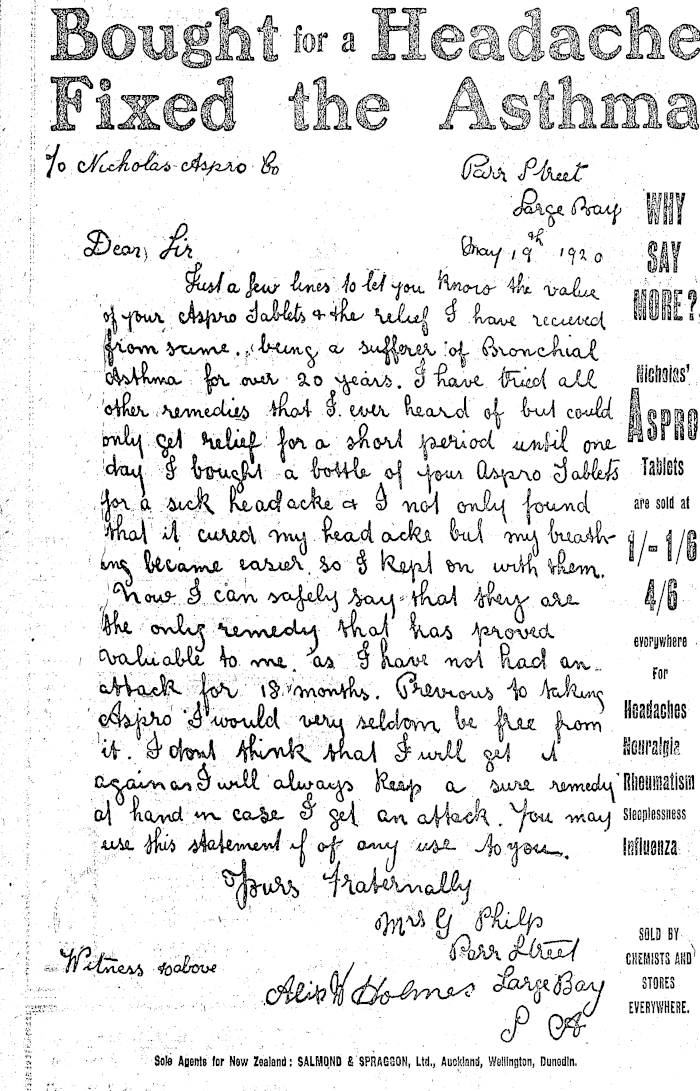 Bought for a Headache
Fixed the Asthma
To Nicholas Aspro Co
Parr Street
Large Bay
May 19th 1920
Dear, Sir
Just a few lines to let you know the value
of your Aspro Tablets & the relief I have recieved
from same. being a sufferer of Bronchial
Asthma for over 20 years. I have tried all
other remedies that I ever heard of but could
only get relief for a short period until one
day I bought a bottle of your Aspro Tablets
for a sick headache & I not only found
that it cured my head ache but my breath-
ing became easier so I kept on with them.
Now I can safely say that they are
the only remedy that has proved
valuable to me, as I have not had an
attack for 18 months. Previous to taking
Aspro I would very seldom be free from
it. I dont think that I will get it
again as I will always keep a sure remedy
at hand in case I get an attack. You may
use this statement if of any use to you.
Yours fraternally
Mrs G Philp
Parr Street
Large Bay
S A
Witness to above
Holmes
WHY
SAY
MORE?
Nicholas'
ASPRO
Tablets
are sold at
1/- 1/6
4/6
everywhere
For
Headaches
Neuralgia
Rheumatism
Sleeplessness
Influenza
SOLD BY
CHEMISTS AND
STORES
EVERYWHERE.
Sole Agents for New Zealand: SALMOND & SPRAGGON, Ltd., Auckland, Wellington, Dunedin.